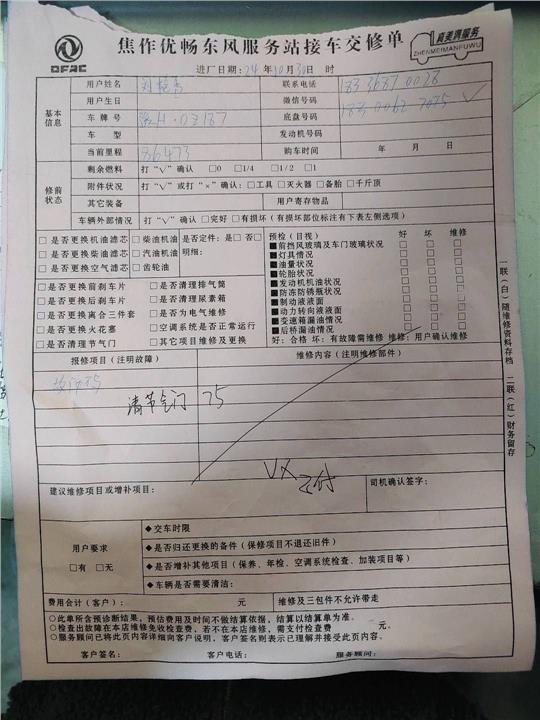 DFAC
焦作优畅东风服务站接车交修单
真美满服务
ZHENMEIMANFUWU
进厂日期：24 年 10 月 30 日 时
基本信息
用户姓名
联系电话 183 3687 0028
用户生日
微信号码 183 0062 7075
车牌号
底盘号码
车 型
发动机号码
当前里程 86473
购车时间 年 月 日
修前状态
剩余燃料 打“√”确认 □0 □1/4 □1/2 □1
附件状况 打“√”或打“×”确认：□工具 □灭火器 □备胎 □千斤顶
其它装备
用户寄存物品
车辆外部情况 打“√”确认 □完好 □有损坏（有损坏部位标注有下表左侧选项）
□是否更换机油滤芯 □柴油机油 是否定件：是□否□
□是否更换柴油滤芯 □汽油机油 明细：
□是否更换空气滤芯 □齿轮油
□是否更换前刹车片 □是否清理排气筒
□是否更换后刹车片 □是否清理尿素箱
□是否更换离合三件套 □是否为电气维修
□是否更换火花塞 □空调系统是否正常运行
□是否清理节气门 □其它项目维修及更换
预检（目视） 好 坏 维修
■前挡风玻璃及车门玻璃状况 □ □ □
■灯具情况 □ □ □
■油量状况 □ □ □
■轮胎状况 □ □ □
■发动机机油液面 □ □ □
■防冻防锈瓶状况 □ □ □
■制动液液面 □ □ □
■动力转向液液面 □ □ □
■变速箱漏油情况 □ □ □
■后桥漏油情况 □ □ □
好：合格 坏：有故障需维修 维修：用户确认维修
报修项目（注明故障）
维修内容（注明维修部件）
清节气门 75
建议维修项目或增补项目：
司机确认签字：
用户要求
□有 □无
◆交车时限
◆是否归还更换的备件（保修项目不退还旧件）
◆是否增补其他项目（保养、年检、空调系统检查、加装项目等）
◆车辆是否需要清洁：
费用合计（客户）： 元
维修及三包件不允许带走
○此单所含预诊断结果，预估费用及时间不做结算依据，结算以结算单为准。
○检查出故障在本店维修免收检查费，若不在本店维修，需支付检查费 元。
○服务顾问已将此页内容详细向客户说明，客户签名则表示已理解并接受此页内容。
客户签名： 客户电话： 服务顾问：
一联（白）随维修资料存档
二联（红）财务留存